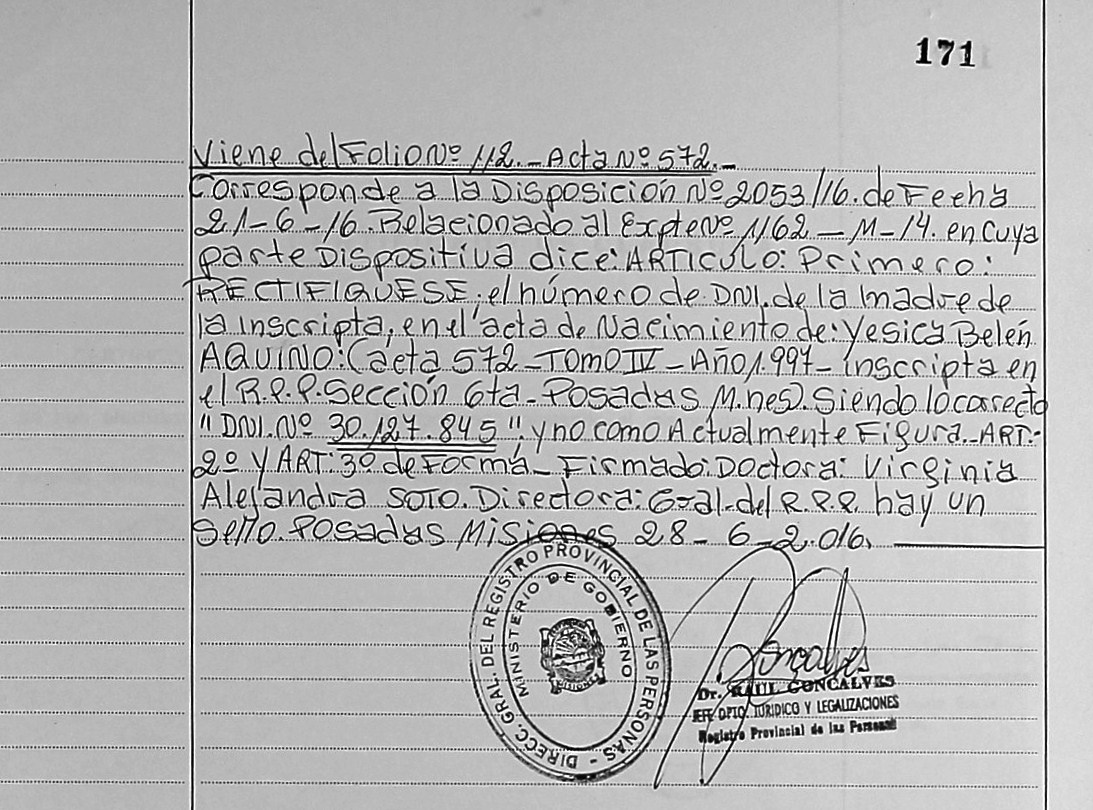 171
Viene del Folio Nº 112.-Acta Nº 572.-
Corresponde a la Disposición Nº 2053/16. de Fecha
21-6-16. Relacionado al Expte Nº 1162-M-14. en cuya
parte Dispositiva dice: ARTICULO: Primero:
RECTIFIQUESE; el número de DNI. de la madre de
la inscripta, en el acta de Nacimiento de: Yesica Belén
AQUINO: (acta 572-TOMO IV-Año 1.997- inscripta en
el R.P.P. Sección 6ta- Posadas M.nes). Siendo lo correcto
"DNI. Nº 30.127.845", y no como Actualmente Figura.-ART:-
2º Y ART: 3º de Forma- Firmado: Doctora: Virginia
Alejandra SOTO. Directora: Gral-del R.P.P. hay un
Sello. Posadas Misiones 28-6-2.016.
DIRECC. GRAL. DEL REGISTRO PROVINCIAL DE LAS PERSONAS -
MINISTERIO DE GOBIERNO
MISIONES
Gonçalves
Dr. RAUL GONCALVES
JEFE DPTO. JURIDICO Y LEGALIZACIONES
Registro Provincial de las Personas